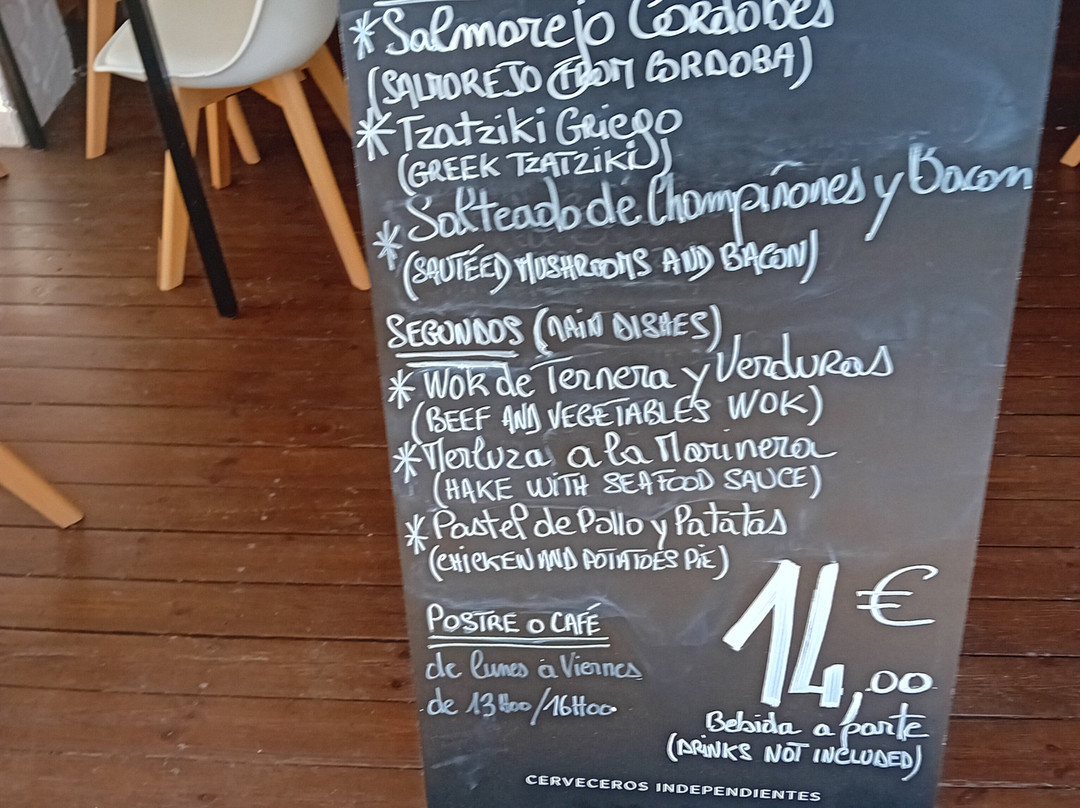 * Salmorejo Cordobés
(SALMOREJO FROM CORDOBA)
* Tzatziki Griego
(GREEK TZATZIKI)
* Salteado de Champiñones y Bacon
(SAUTÉED MUSHROOMS AND BACON)
SEGUNDOS (MAIN DISHES)
* Wok de Ternera y Verduras
(BEEF AND VEGETABLES WOK)
* Merluza a la Marinera
(HAKE WITH SEAFOOD SAUCE)
* Pastel de Pollo y Patatas
(CHICKEN AND POTATOES PIE)
POSTRE O CAFÉ
de lunes a Viernes
de 13H00/16H00
14,00 €
Bebida a parte
(DRINKS NOT INCLUDED)
CERVECEROS INDEPENDIENTES